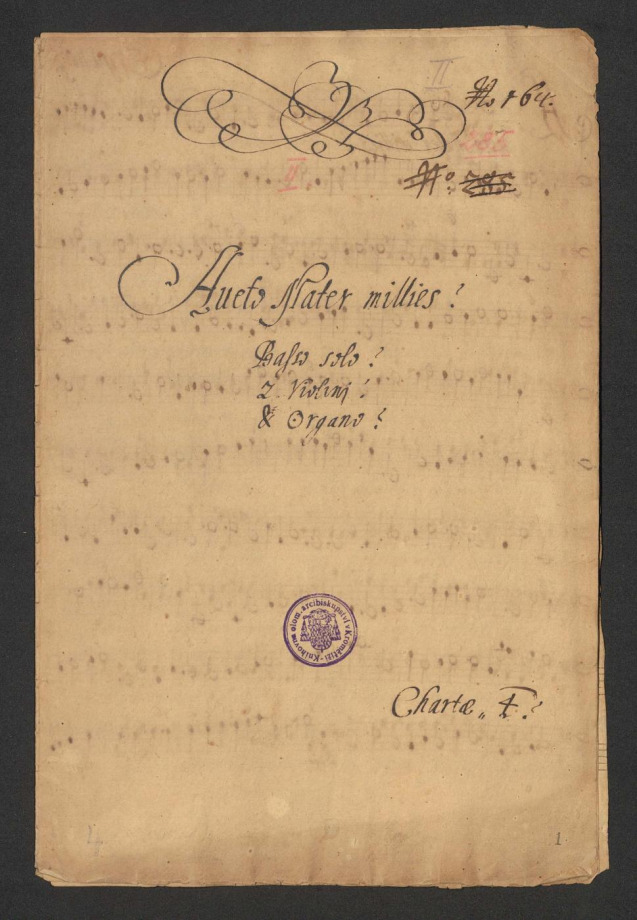 II
No 164.
285
II
No. 285
Aueto Mater millies.
Basso solo.
2 Violinj.
& Organo.
Knihovna olom. arcibiskupství v Kroměříži
Chartæ „ 4.
4
1